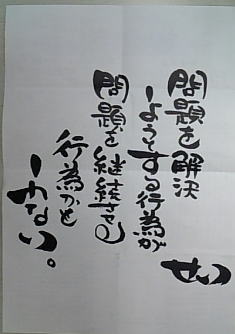 問題を解決
しようとする行為が
問題を継続させる
行為かも
しれない。
せい